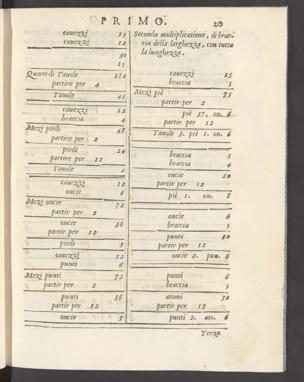 PRIMO.
20
cauezzi 15
cauezzi 12
30
15
Quarti di Tauole 180
partire per 4
Tauole 45
cauezzi 12
braccia 4
Mezi piedi 48
partire per 2
piedi 24
partire per 12
Tauole 2
cauezzi 12
oncie 6
Mezi oncie 72
partir per 2
oncie 36
partir per 12
piedi 3
cauezzi 12
punti 6
Mezi punti 72
partir per 2
punti 36
partir per 12
oncie 3
Seconda multiplicatione, di brac-
cia della larghezza, con tutta
la lunghezza.
cauezzi 15
braccia 5
Mezi piè 75
partir per 2
piè 37, on. 6
partir per 12
Tauole 3. piè 1. on. 6
braccia 5
braccia 4
oncie 20
partir per 12
piè 1. on. 8
oncie 6
braccia 5
punti 30
partir per 12
oncie 2. pun. 6
punti 6
braccia 5
atomi 30
partir per 12
punti 2. ato. 6
Terza